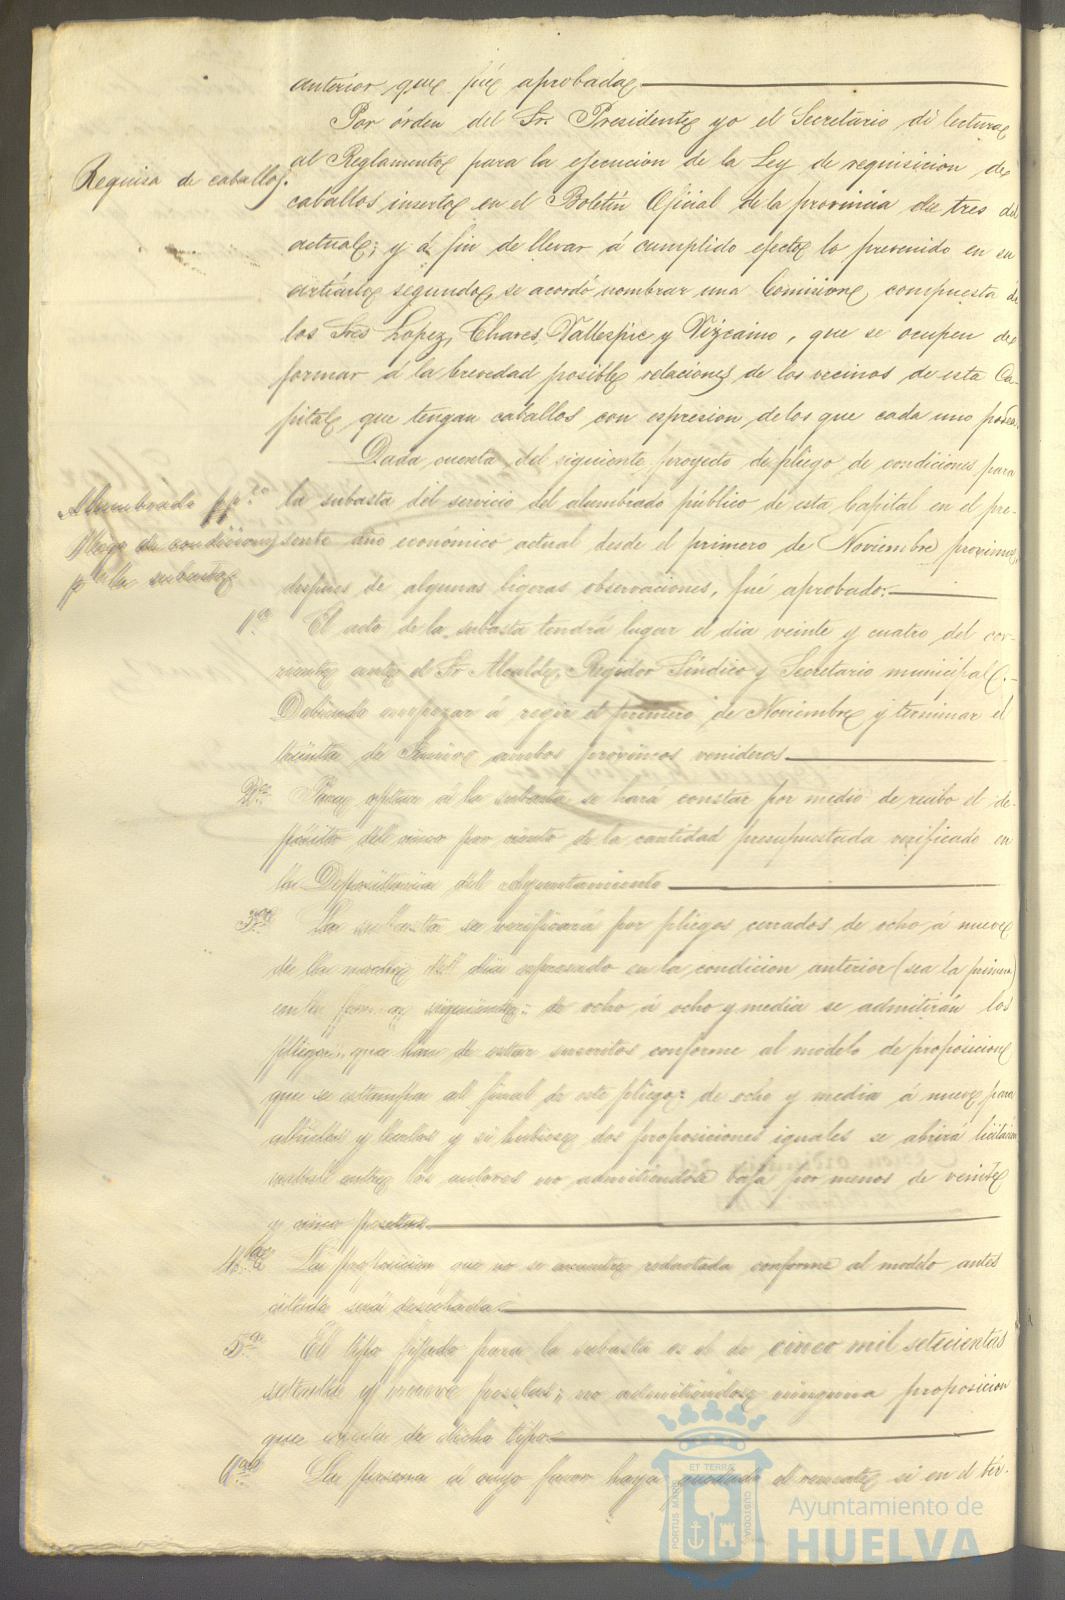 anterior que fué aprobada
Por órden del Sr. Presidente yo el Secretario dí lectura
al Reglamento para la ejecucion de la Ley de requisicion de
Requisa de caballos.
caballos inserto en el Boletin Oficial de la provincia de tres del
actual; y á fin de llevar á cumplido efecto lo prevenido en su
artículo segundo, se acordó nombrar una Comision compuesta de
los Sres Lopez, Chares, Vallespir y Vizcaino, que se ocupen de
formar á la brevedad posible relaciones de los vecinos de esta Ca-
pital que tengan caballos con espresion de los que cada uno posea.
Dada cuenta del siguiente proyecto de pliego de condiciones para
Alumbrado pp.co
la subasta del servicio del alumbrado público de esta Capital en el pre-
Pliego de condiciones
sente año económico actual desde el primero de Noviembre proximo,
pa la subasta
despues de algunas ligeras observaciones, fué aprobado:
1.a El acto de la subasta tendrá lugar el dia veinte y cuatro del cor-
riente ante el Sr Alcalde, Regidor Síndico y Secretario municipal.-
Debiendo empezar á regir el primero de Noviembre y terminar el
treinta de Junio ambos proximos venideros
2.a Para optar á la subasta se hará constar por medio de recibo el de-
pósito del cinco por ciento de la cantidad presupuestada verificado en
la Depositaria del Ayuntamiento
3.a La subasta se verificará por pliegos cerrados de ocho á nueve
de la noche del dia espresado en la condicion anterior (sea la primera)
en la forma siguiente: de ocho á ocho y media se admitirán los
pliegos, que han de estar suscritos conforme al modelo de proposicion
que se estampa al final de este pliego: de ocho y media á nueve para
abrirlos y leerlos y si hubiese dos proposiciones iguales se abrirá licitacion
verbal entre los autores no admitiéndose baja por menos de veinte
y cinco pesetas
4.a La proposicion que no se encuentre redactada conforme al modelo antes
citado será desechada.
5.a El tipo fijado para la subasta es el de cinco mil setecientas
setenta y nueve pesetas; no admitiéndose ninguna proposicion
que exceda de dicho tipo
6.a La persona á cuyo favor haya quedado el remate, si en el tér-
PORTUS MARIS ET TERRÆ CUSTODIA
Ayuntamiento de
HUELVA